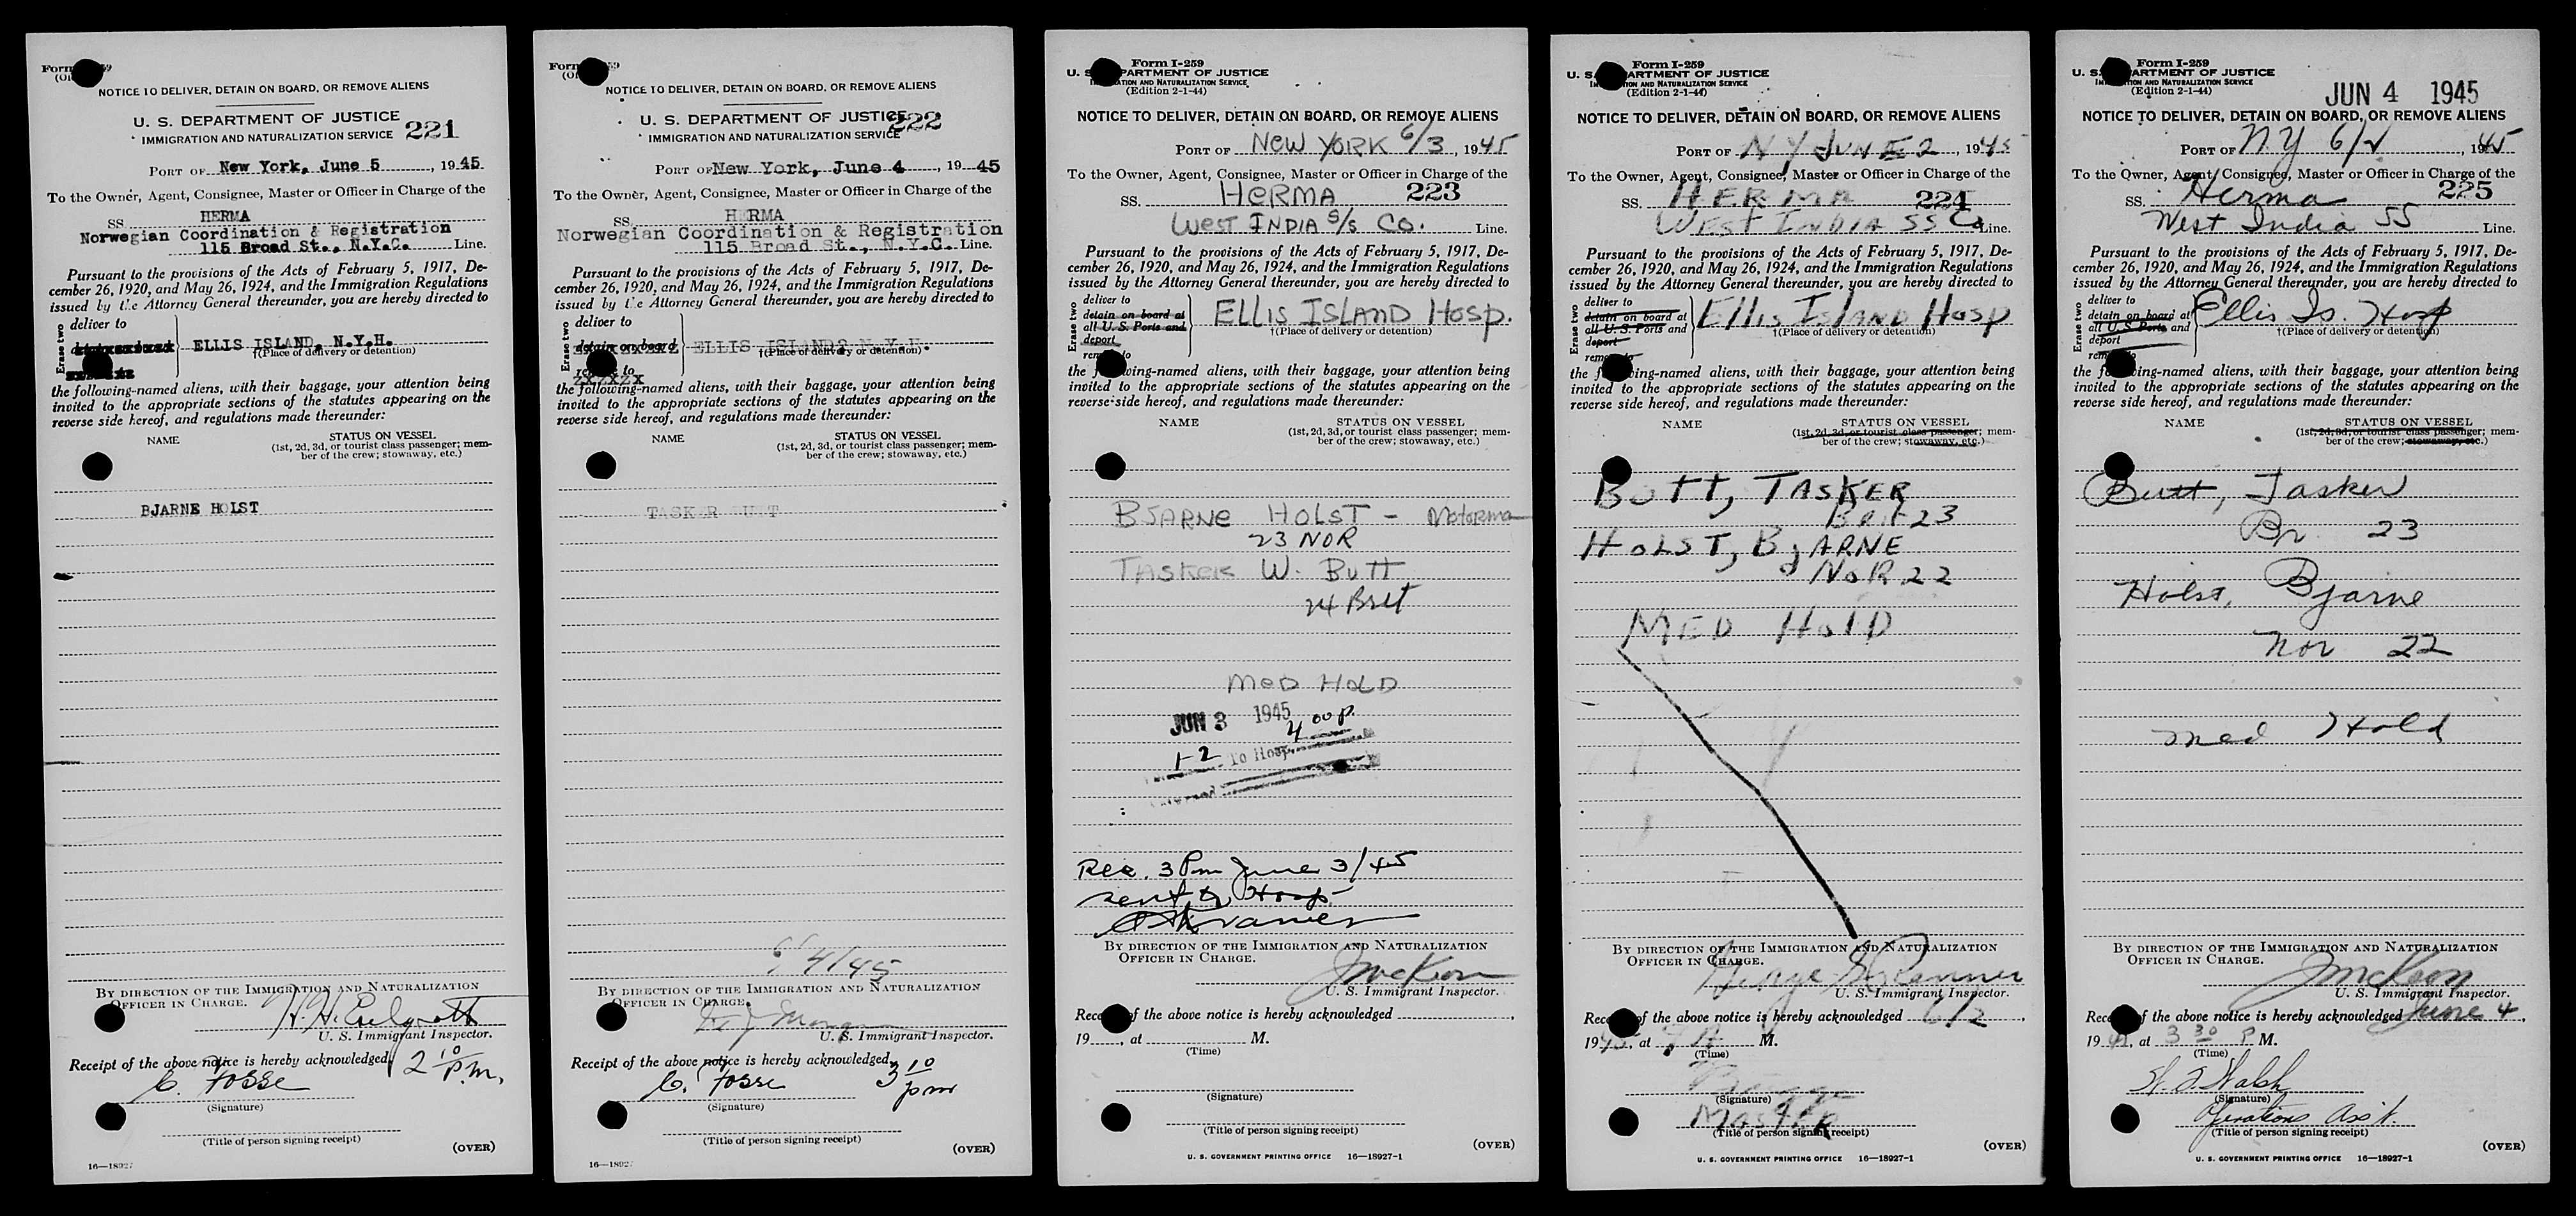 Form
NOTICE TO DELIVER, DETAIN ON BOARD, OR REMOVE ALIENS
U. S. DEPARTMENT OF JUSTICE
IMMIGRATION AND NATURALIZATION SERVICE 221
PORT OF New York, June 5, 1945
To the Owner, Agent, Consignee, Master or Officer in Charge of the
SS. HERMA
Norwegian Coordination & Registration
115 Broad St., N.Y.C. Line.
Pursuant to the provisions of the Acts of February 5, 1917, De-
cember 26, 1920, and May 26, 1924, and the Immigration Regulations
issued by the Attorney General thereunder, you are hereby directed to
Erase two
deliver to
ELLIS ISLAND, N.Y.H.
†(Place of delivery or detention)
the following-named aliens, with their baggage, your attention being
invited to the appropriate sections of the statutes appearing on the
reverse side hereof, and regulations made thereunder:
NAME STATUS ON VESSEL
(1st, 2d, 3d, or tourist class passenger; mem-
ber of the crew; stowaway, etc.)
BJARNE HOLST
BY DIRECTION OF THE IMMIGRATION AND NATURALIZATION
OFFICER IN CHARGE.
U. S. Immigrant Inspector.
Receipt of the above notice is hereby acknowledged 2 10 P.M.
C. Fosse
(Signature)
(Title of person signing receipt)
(OVER)
16—18927
Form
NOTICE TO DELIVER, DETAIN ON BOARD, OR REMOVE ALIENS
U. S. DEPARTMENT OF JUSTICE
IMMIGRATION AND NATURALIZATION SERVICE 222
PORT OF New York, June 4, 1945
To the Owner, Agent, Consignee, Master or Officer in Charge of the
SS. HERMA
Norwegian Coordination & Registration
115 Broad St., N.Y.C. Line.
Pursuant to the provisions of the Acts of February 5, 1917, De-
cember 26, 1920, and May 26, 1924, and the Immigration Regulations
issued by the Attorney General thereunder, you are hereby directed to
Erase two
deliver to
detain on board
ELLIS ISLAND, N.Y.H.
†(Place of delivery or detention)
the following-named aliens, with their baggage, your attention being
invited to the appropriate sections of the statutes appearing on the
reverse side hereof, and regulations made thereunder:
NAME STATUS ON VESSEL
(1st, 2d, 3d, or tourist class passenger; mem-
ber of the crew; stowaway, etc.)
TASKER BUTT
6/4/45
BY DIRECTION OF THE IMMIGRATION AND NATURALIZATION
OFFICER IN CHARGE.
U. S. Immigrant Inspector.
Receipt of the above notice is hereby acknowledged 3 10 pm
C. Fosse
(Signature)
(Title of person signing receipt)
(OVER)
16—1892
Form I-259
U. S. DEPARTMENT OF JUSTICE
IMMIGRATION AND NATURALIZATION SERVICE
(Edition 2-1-44)
NOTICE TO DELIVER, DETAIN ON BOARD, OR REMOVE ALIENS
PORT OF NEW YORK 6/3, 1945
To the Owner, Agent, Consignee, Master or Officer in Charge of the
SS. HERMA 223
WEST INDIA S/S CO. Line.
Pursuant to the provisions of the Acts of February 5, 1917, De-
cember 26, 1920, and May 26, 1924, and the Immigration Regulations
issued by the Attorney General thereunder, you are hereby directed to
Erase two
deliver to
detain on board at
all U. S. Ports and
deport
remove to
ELLIS ISLAND Hosp.
†(Place of delivery or detention)
the following-named aliens, with their baggage, your attention being
invited to the appropriate sections of the statutes appearing on the
reverse side hereof, and regulations made thereunder:
NAME STATUS ON VESSEL
(1st, 2d, 3d, or tourist class passenger; mem-
ber of the crew; stowaway, etc.)
BJARNE HOLST - Motorma
23 NOR
TASKER W. BUTT
24 Brit
MED HOLD
JUN 3 1945
4 00 p.
1-2 To Hosp.
Rec. 3 Pm June 3/45
sent to Hosp.
BY DIRECTION OF THE IMMIGRATION AND NATURALIZATION
OFFICER IN CHARGE.
J McKeon
U. S. Immigrant Inspector.
Receipt of the above notice is hereby acknowledged
19 , at M.
(Time)
(Signature)
(Title of person signing receipt)
(OVER)
U. S. GOVERNMENT PRINTING OFFICE 16—18927-1
Form I-259
U. S. DEPARTMENT OF JUSTICE
IMMIGRATION AND NATURALIZATION SERVICE
(Edition 2-1-44)
NOTICE TO DELIVER, DETAIN ON BOARD, OR REMOVE ALIENS
PORT OF N Y JUNE 2, 1945
To the Owner, Agent, Consignee, Master or Officer in Charge of the
SS. HERMA 224
WEST INDIA SS Co Line.
Pursuant to the provisions of the Acts of February 5, 1917, De-
cember 26, 1920, and May 26, 1924, and the Immigration Regulations
issued by the Attorney General thereunder, you are hereby directed to
Erase two
deliver to
detain on board at
all U. S. Ports and
deport
remove to
Ellis ISLAND Hosp
†(Place of delivery or detention)
the following-named aliens, with their baggage, your attention being
invited to the appropriate sections of the statutes appearing on the
reverse side hereof, and regulations made thereunder:
NAME STATUS ON VESSEL
(1st, 2d, 3d, or tourist class passenger; mem-
ber of the crew; stowaway, etc.)
BUTT, TASKER
Brit 23
HOLST, BjARNE
NOR 22
MED HOLD
BY DIRECTION OF THE IMMIGRATION AND NATURALIZATION
OFFICER IN CHARGE.
U. S. Immigrant Inspector.
Receipt of the above notice is hereby acknowledged 6/2,
1945, at M.
(Time)
(Signature)
MASTER
(Title of person signing receipt)
(OVER)
U. S. GOVERNMENT PRINTING OFFICE 16—18927-1
Form I-259
U. S. DEPARTMENT OF JUSTICE
IMMIGRATION AND NATURALIZATION SERVICE
(Edition 2-1-44)
JUN 4 1945
NOTICE TO DELIVER, DETAIN ON BOARD, OR REMOVE ALIENS
PORT OF N Y 6/2, 1945
To the Owner, Agent, Consignee, Master or Officer in Charge of the
SS. Herma 225
West India SS Line.
Pursuant to the provisions of the Acts of February 5, 1917, De-
cember 26, 1920, and May 26, 1924, and the Immigration Regulations
issued by the Attorney General thereunder, you are hereby directed to
Erase two
deliver to
detain on board at
all U. S. Ports and
deport
remove to
Ellis Is. Hosp
†(Place of delivery or detention)
the following-named aliens, with their baggage, your attention being
invited to the appropriate sections of the statutes appearing on the
reverse side hereof, and regulations made thereunder:
NAME STATUS ON VESSEL
(1st, 2d, 3d, or tourist class passenger; mem-
ber of the crew; stowaway, etc.)
Butt, Tasker
Br 23
Holst, Bjarne
Nor 22
Med Hold
BY DIRECTION OF THE IMMIGRATION AND NATURALIZATION
OFFICER IN CHARGE.
J McKeon
U. S. Immigrant Inspector.
Receipt of the above notice is hereby acknowledged June 4,
1945, at 3 30 P M.
(Time)
Walsh
(Signature)
Operations Ass't.
(Title of person signing receipt)
(OVER)
U. S. GOVERNMENT PRINTING OFFICE 16—18927-1